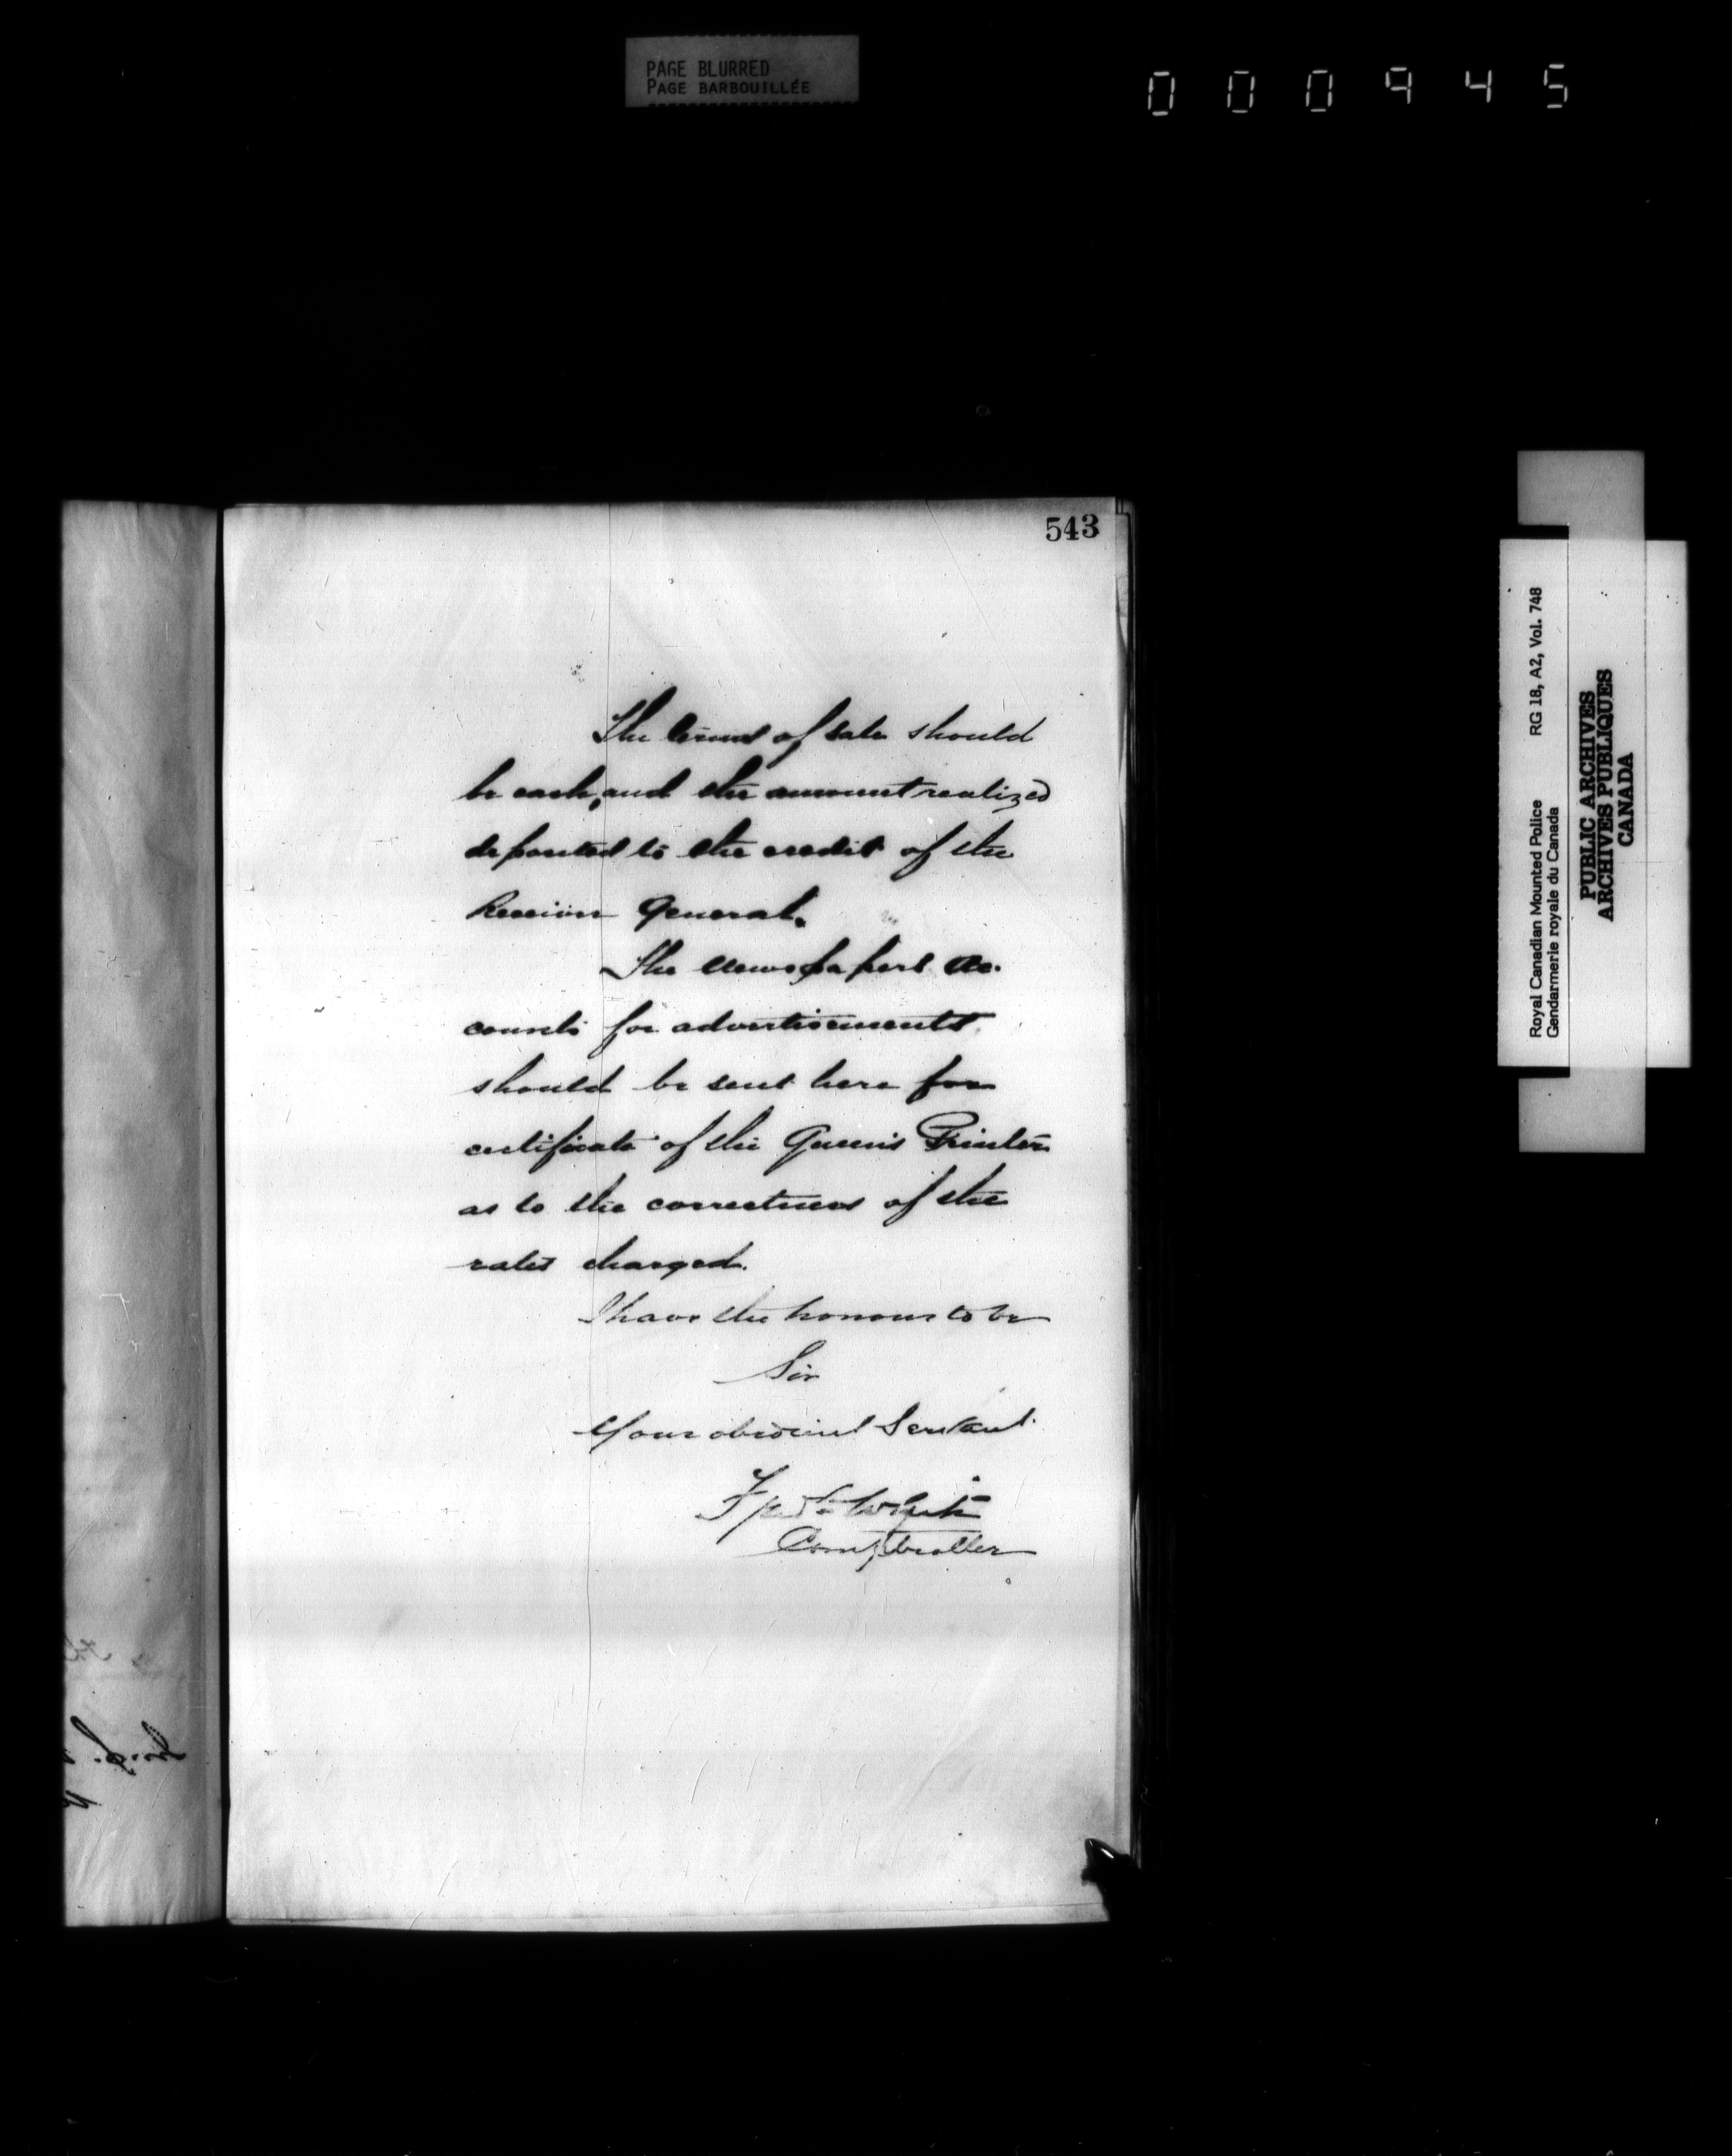 PAGE BLURRED
PAGE BARBOUILLÉE
000945
543
The terms of sale should
be cash, and the amount realized
deposited to the credit of the
Receiver General.
The newspapers ac-
counts for advertisements
should be sent here for
certificate of the Queen's Printer
as to the correctness of the
rates charged.
I have the honour to be
Sir
Your obedient Servant
Fred White
Comptroller
Royal Canadian Mounted Police RG 18, A2, Vol. 748
Gendarmerie royale du Canada
PUBLIC ARCHIVES
ARCHIVES PUBLIQUES
CANADA